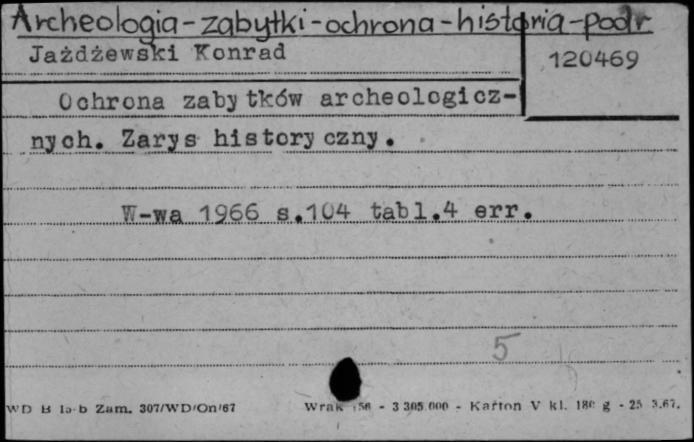 Archeologia-zabytki-ochrona-historia-podr
Jażdżewski Konrad
120469
Ochrona zabytków archeologicz-
nych. Zarys historyczny.
W-wa 1966 s.104 tabl.4 err.
5
WD B Zam. 307/WD/On/67 - 3 305.000 - Karton V kl. 180 g - 25 3.67.